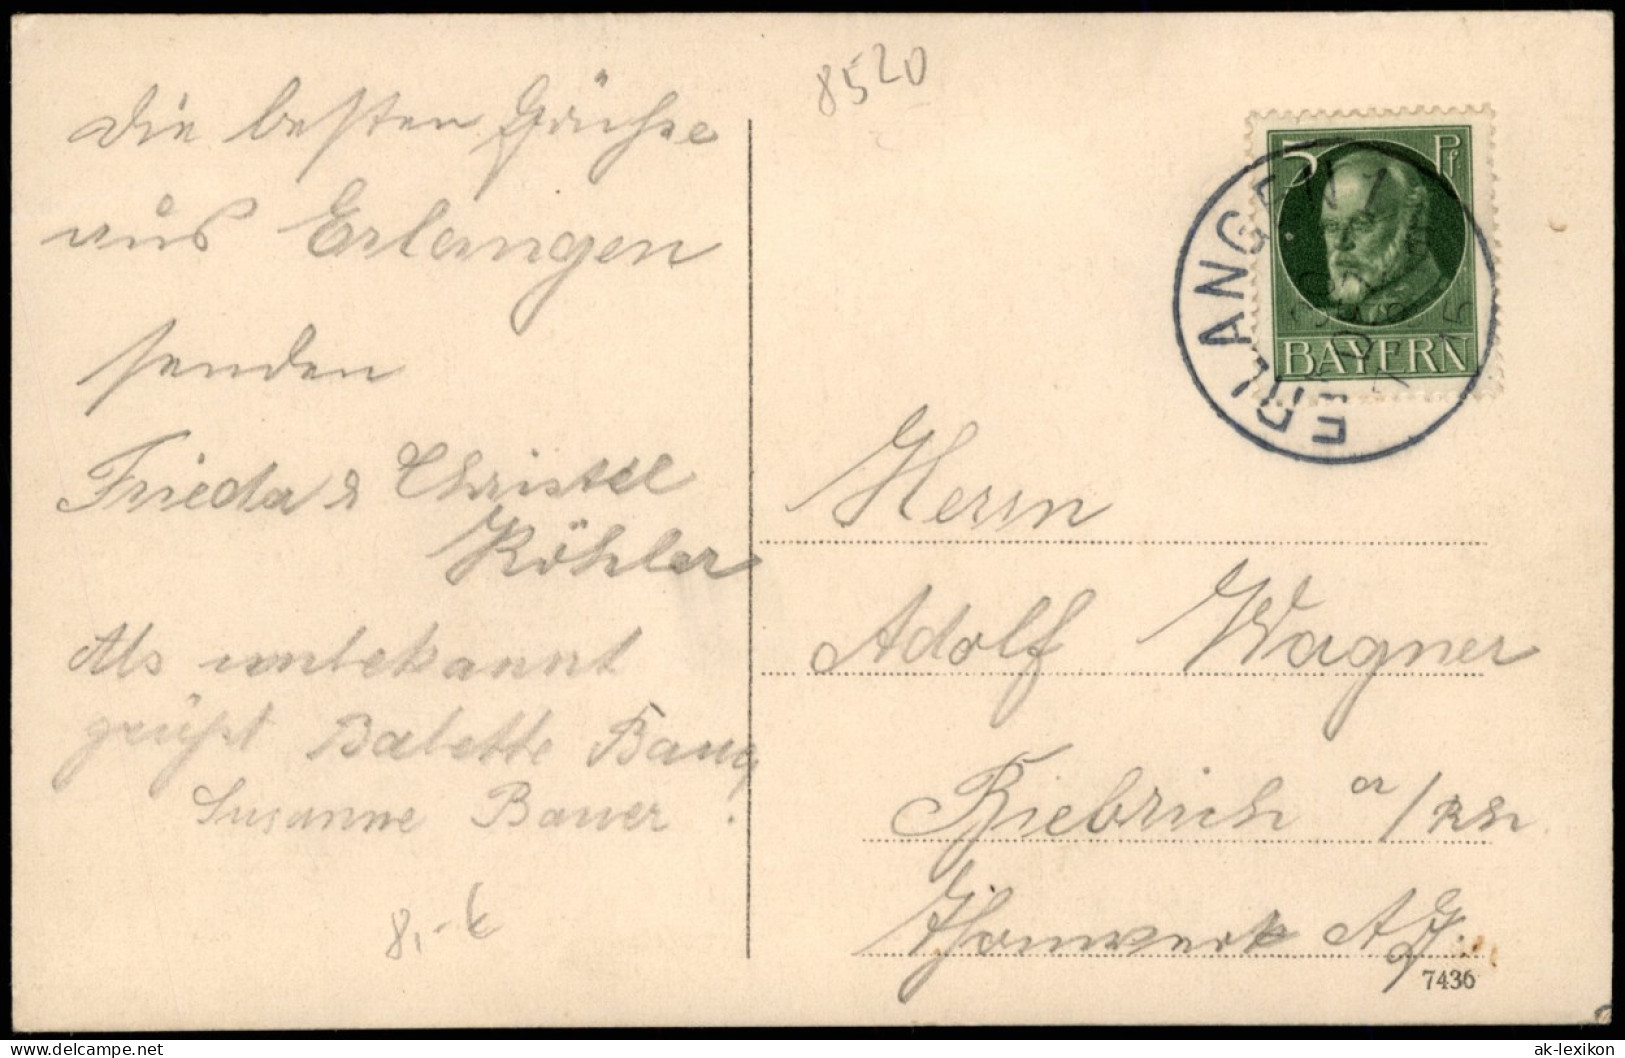 die besten Grüße
aus Erlangen
senden
Frieda & Christel
Köhler
Als unbekannt
grüßt Babette Bang
Susanne Bauer.
8,-€
8520
5 Pf
BAYERN
ERLANGEN 1
Herrn
Adolf Wagner
Biebrich a/Rh
Thonwerk A.G.
7436
akpool.de
ak-lexikon